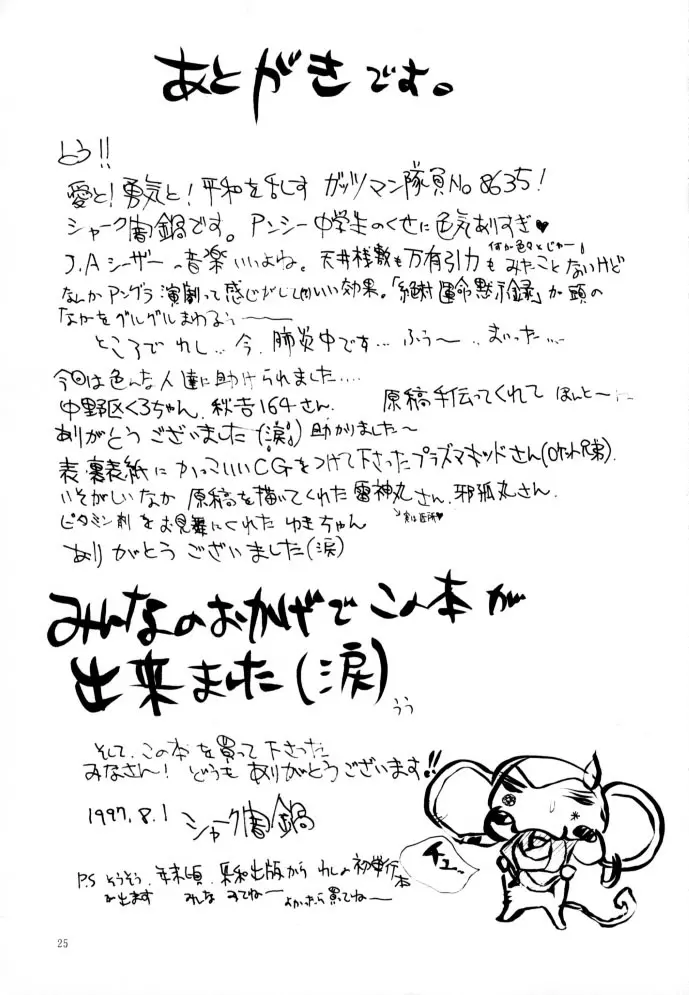 あとがきです。
とう!!
愛と!勇気と!平和を乱すガッツマン隊員No8635!
シャーク闇鍋です。アンシー中学生のくせに色気ありすぎ♥
J.Aシーザーの音楽いいよね。天井桟敷も万有引力もみたことないけど
なんかアングラ演劇って感じがしていい効果。「絶対運命黙示録」が頭の
なかをグルグルまわるぅ〜
ところでわし...今、肺炎中です...ふぅ〜...まいった...
今回は色んな人達に助けられました....
中野区くろちゃん、秋吉164さん、原稿手伝ってくれてほんと〜
ありがとうございました(涙)助かりました〜
表・裏表紙にかっこいいCGをつけて下さったプラズマキッドさん(ロケット兄弟)、
いそがしいなか原稿を描いてくれた雷神丸さん、邪狐丸さん、
ビタミン剤をお見舞にくれたゆきちゃん
ありがとうございました(涙)
みんなのおかげでこの本が
出来ました(涙)
うぅ
そして、この本を買って下さった
みなさん!どうもありがとうございます!!
1997.8.1 シャーク闇鍋
チュー
P.S そうそう、年末頃、東和出版からわしの初単行本
を出ます みんなみてねー よかったら買てねー
25